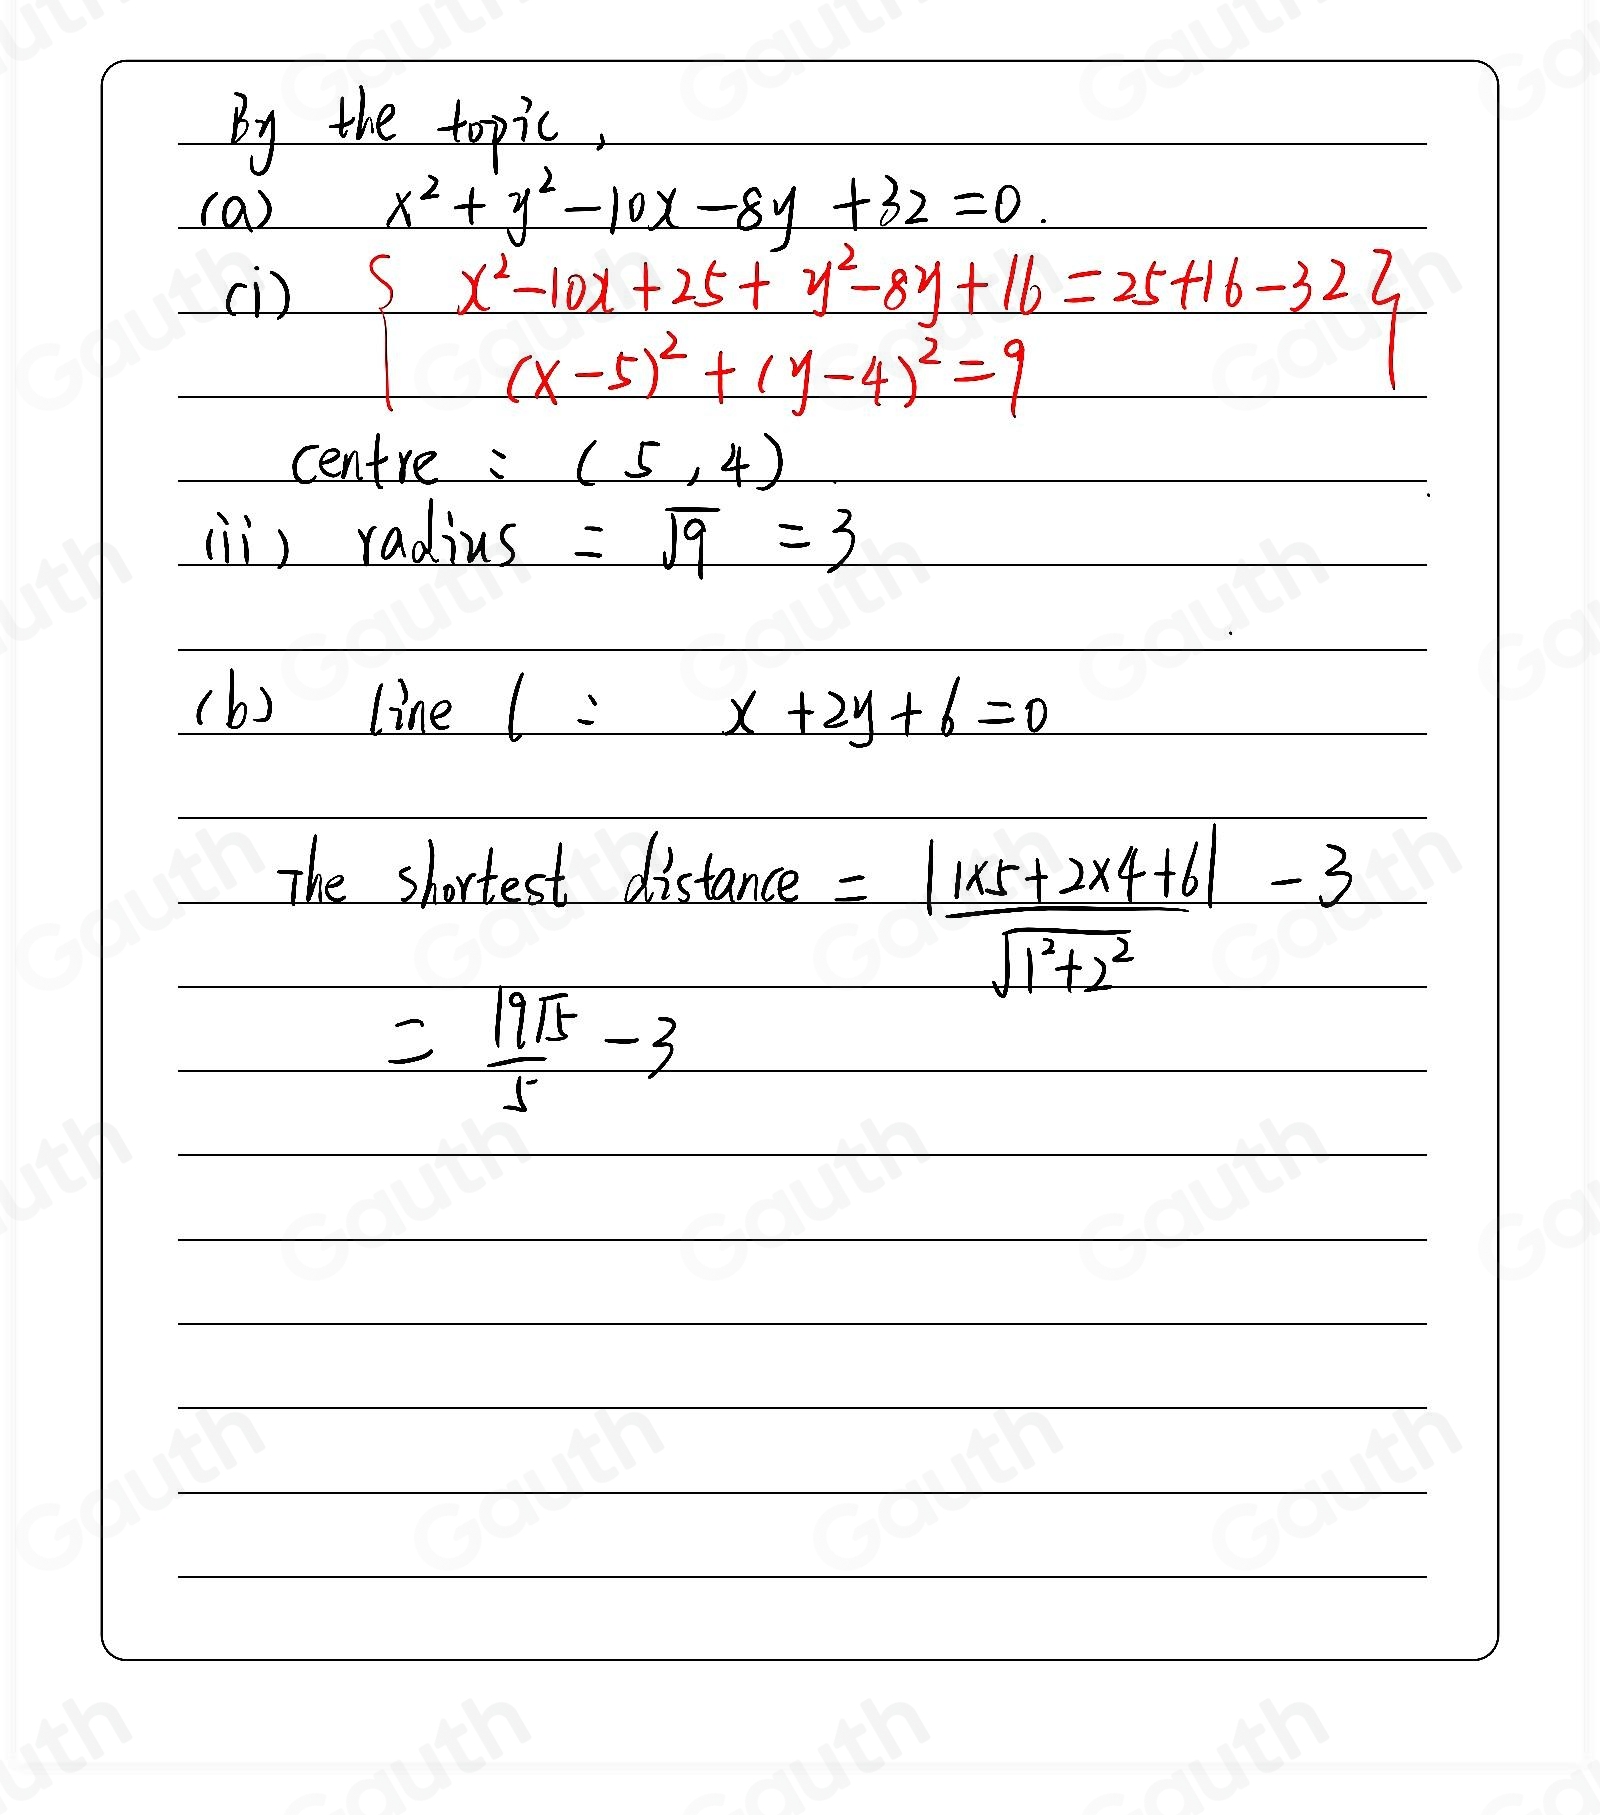 By the topic,
(a) x² + y² - 10x - 8y + 32 = 0.
(i) { x² - 10x + 25 + y² - 8y + 16 = 25 + 16 - 32 }
(x - 5)² + (y - 4)² = 9
centre : (5, 4)
(ii) radius = √9 = 3
(b) line l : x + 2y + 6 = 0
The shortest distance = |1×5 + 2×4 + 6| / √(1² + 2²) - 3
= 19√5 / 5 - 3
Gauth